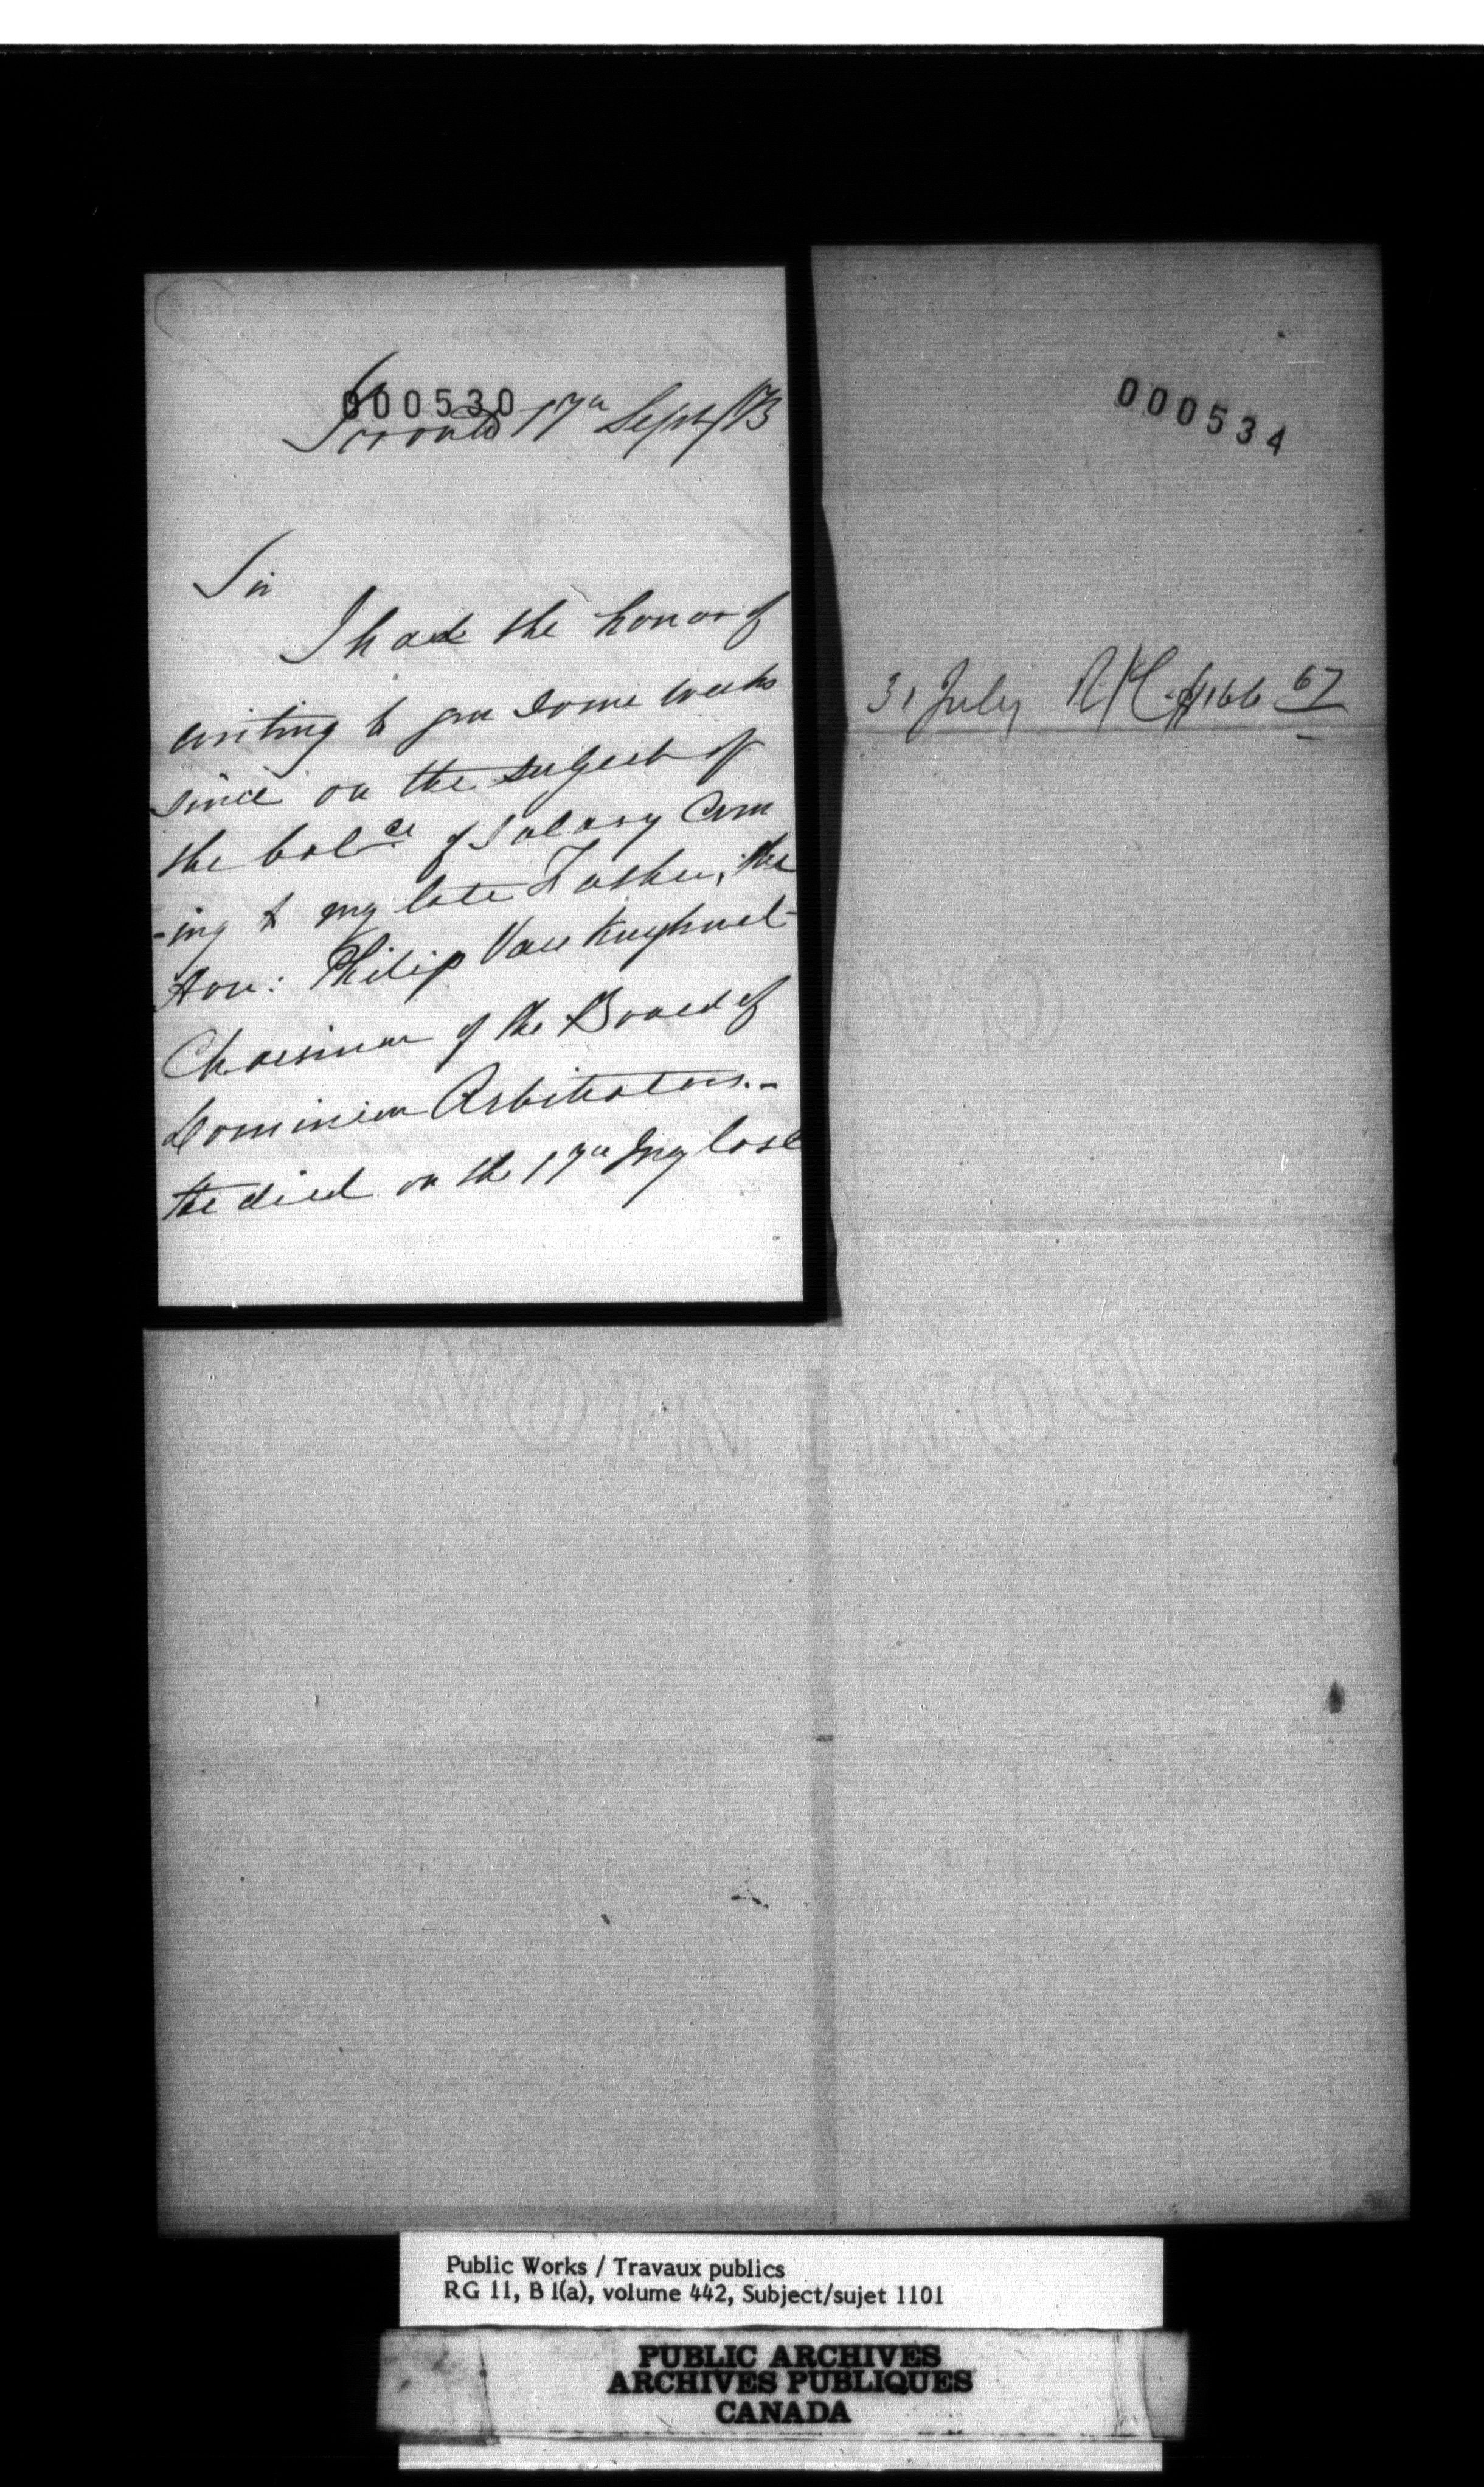 000530
Toronto 17th Sept/73
Sir
I had the honor of
writing to you some weeks
since on the subject of
the balce of salary com
-ing to my late Father, the
Hon: Philip VanKoughnet
Chairman of the Board of
Dominion Arbitrators.-
He died on the 17th May last
000534
31 July $166 67
DOMINION
Public Works / Travaux publics
RG 11, B 1(a), volume 442, Subject/sujet 1101
PUBLIC ARCHIVES
ARCHIVES PUBLIQUES
CANADA